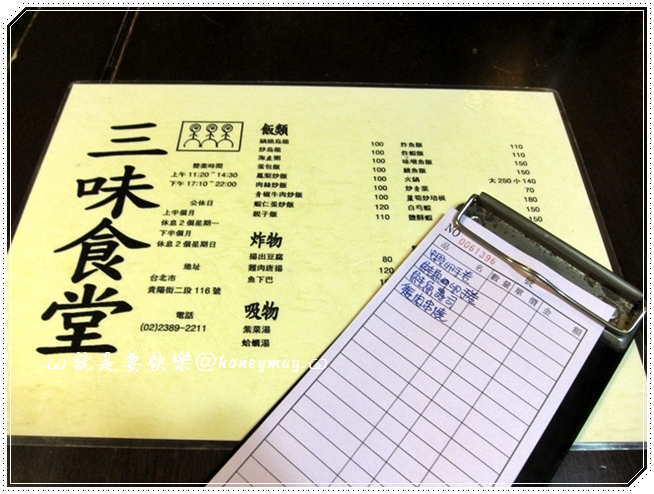 三味食堂
營業時間
上午 11:20~14:30
下午 17:10~22:00
公休日
上半個月
休息2個星期一
下半個月
休息2個星期日
地址
台北市
貴陽街二段116號
電話
(02)2389-2211
飯類
鍋燒烏龍 100
炒烏龍 100
海產粥 100
蛋包飯 100
鳳梨炒飯 100
肉絲炒飯 100
青椒牛肉炒飯 100
蝦仁蛋炒飯 120
親子飯 110
炸物
揚出豆腐 80
雞肉唐揚
魚下巴
吸物
紫菜湯
蛤蠣湯
炸魚飯 110
炸蝦飯 150
味噌魚飯 150
鰻魚飯 150
火鍋 大250小140
炒青菜 70
蘆筍炒培根 180
白芍蝦
鹽酥蝦
NO 0061396
品名 數量 單價 金額
鮭魚壽司
ω就是要快樂@honeymay.ω